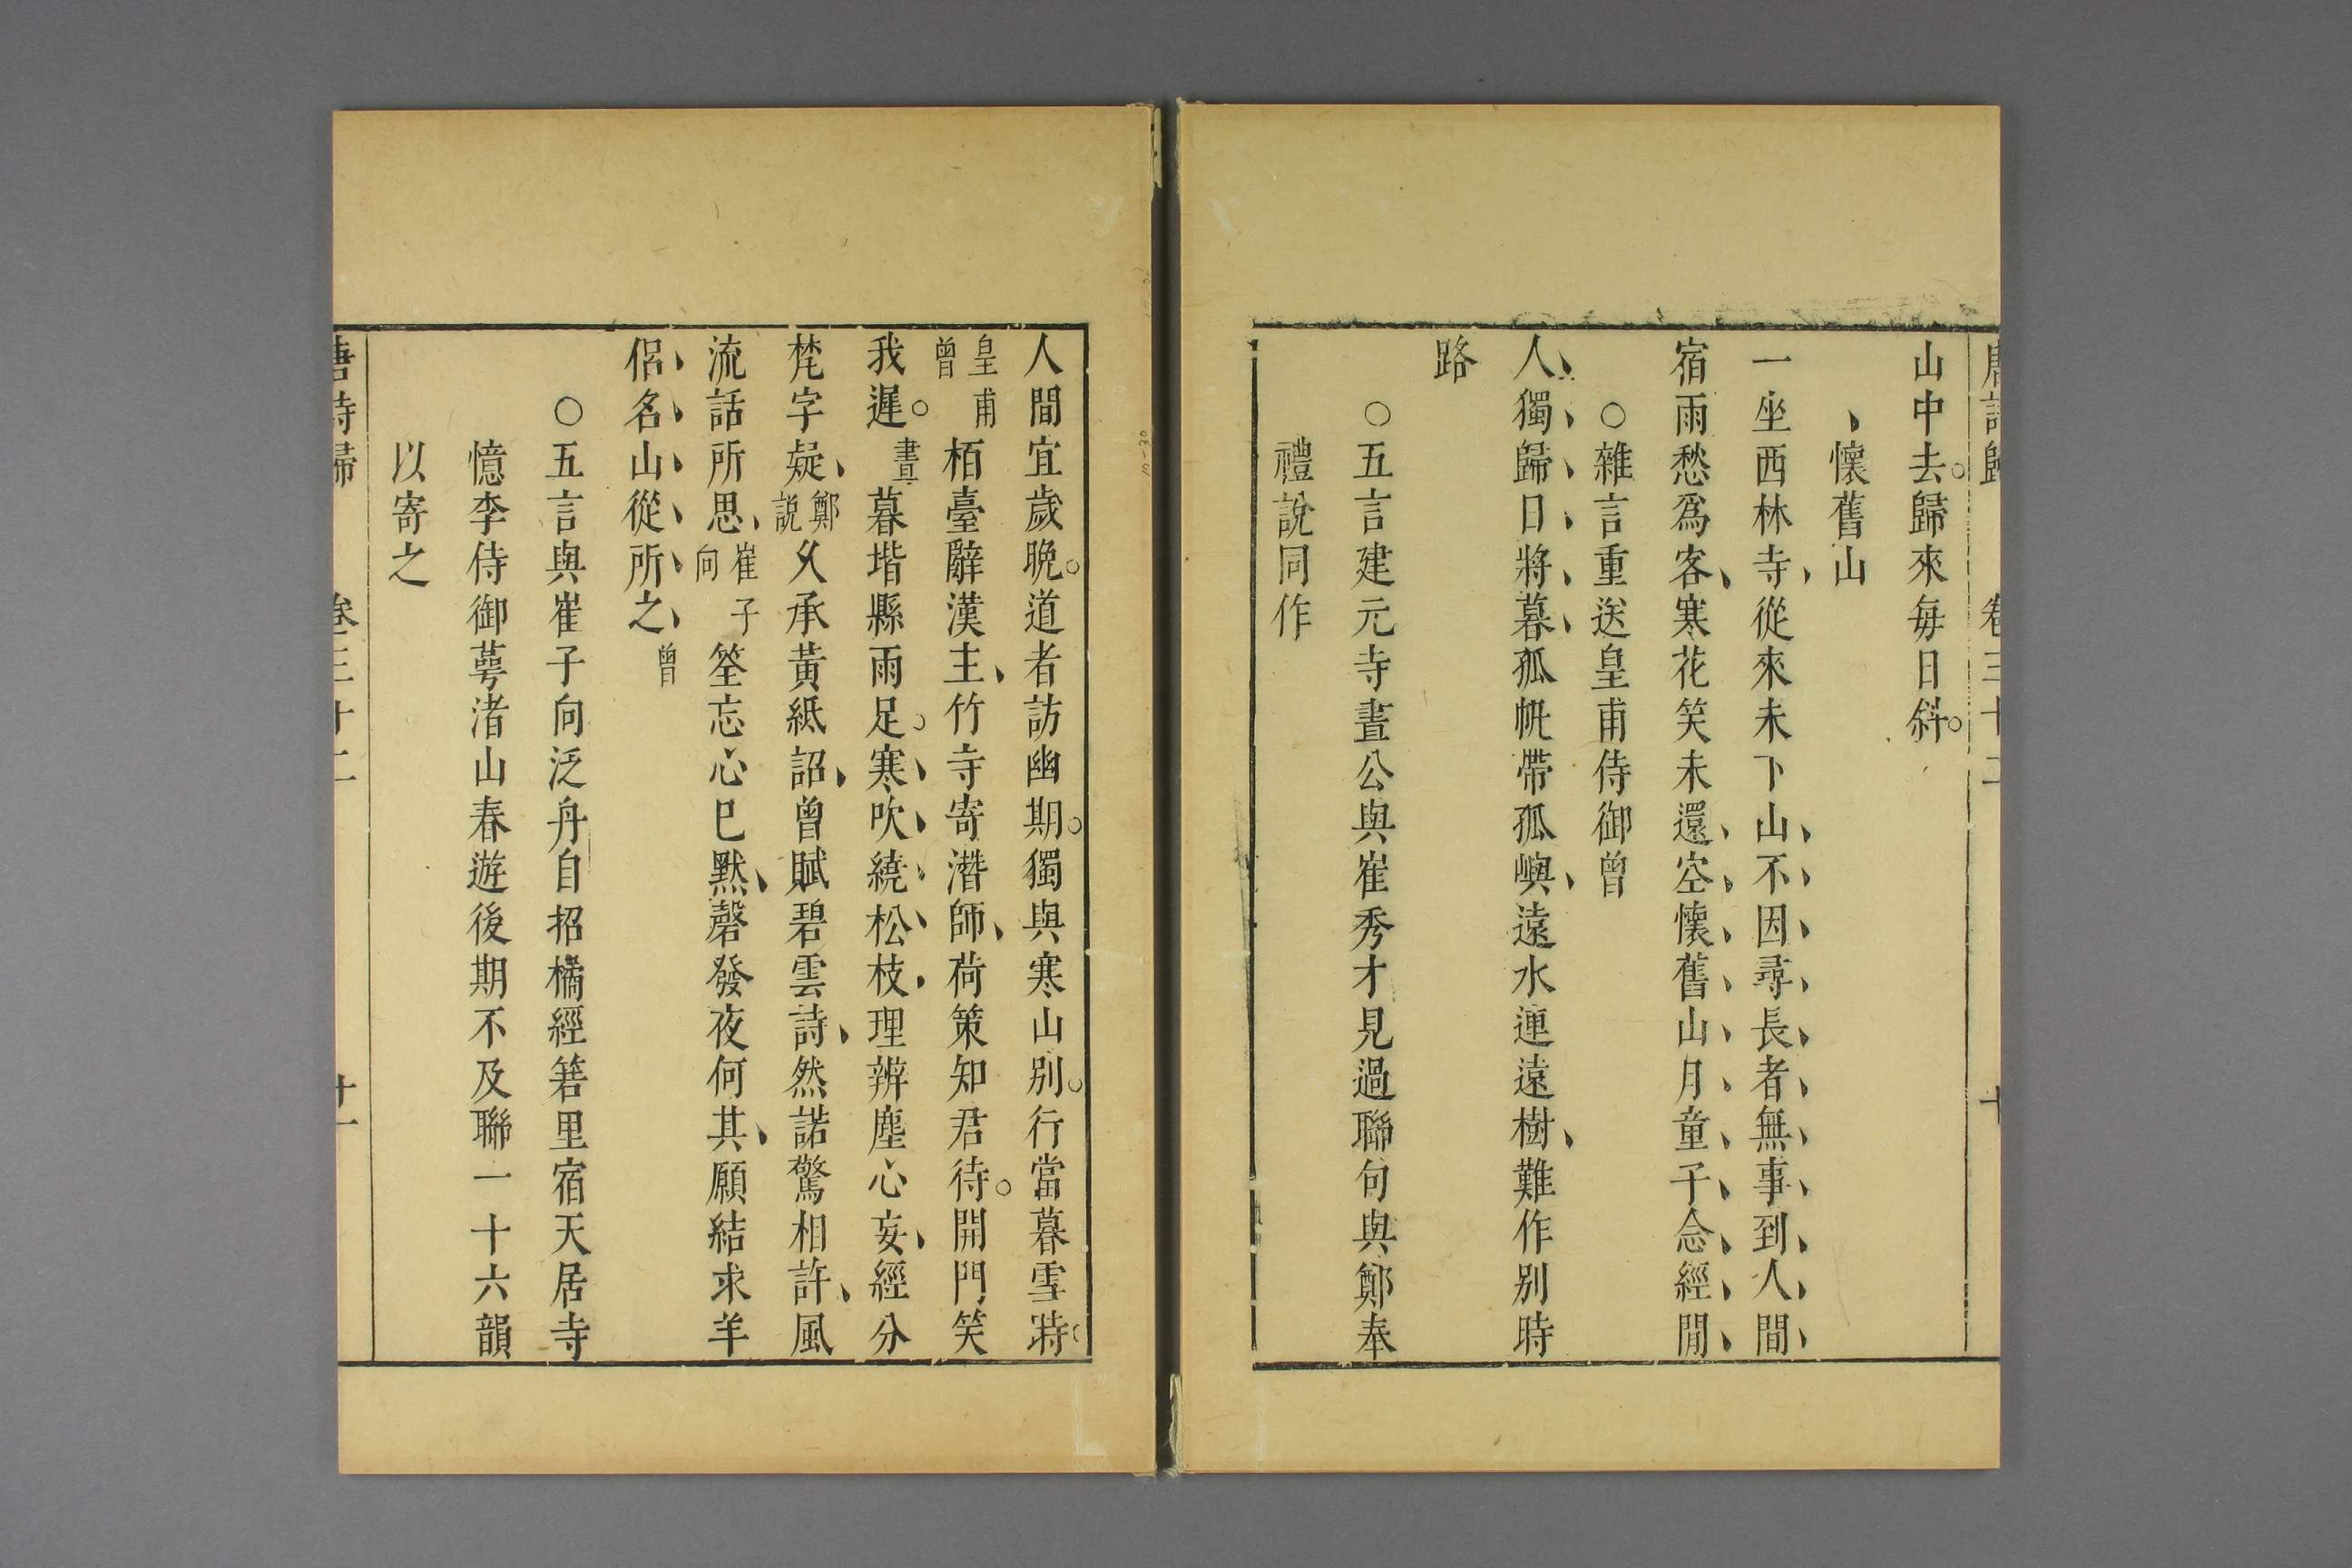 唐詩歸 卷三十二 十
山中去歸來每日斜
懷舊山
一坐西林寺從來未下山不因尋長者無事到人間
宿雨愁爲客寒花笑未還空懷舊山月童子念經閒
○雜言重送皇甫侍御曾
人獨歸日將暮孤帆帶孤嶼遠水連遠樹難作別時
路
○五言建元寺晝公與崔秀才見過聯句與鄭奉
禮說同作
人間宜歲晚道者訪幽期獨與寒山別行當暮雪時
皇甫曾 栢臺辭漢主竹寺寄潛師荷策知君待開門笑
我遲 晝 暮堦縣雨足寒吹繞松枝理辨塵心妄經分
梵字疑 鄭說 久承黃紙詔曾賦碧雲詩然諾驚相許風
流話所思 崔子向 筌忘心已默磬發夜何其願結求羊
侶名山從所之 曾
○五言與崔子向泛舟自招橘經箬里宿天居寺
憶李侍御萼渚山春遊後期不及聯一十六韻
以寄之
唐詩歸 卷三十二 十一